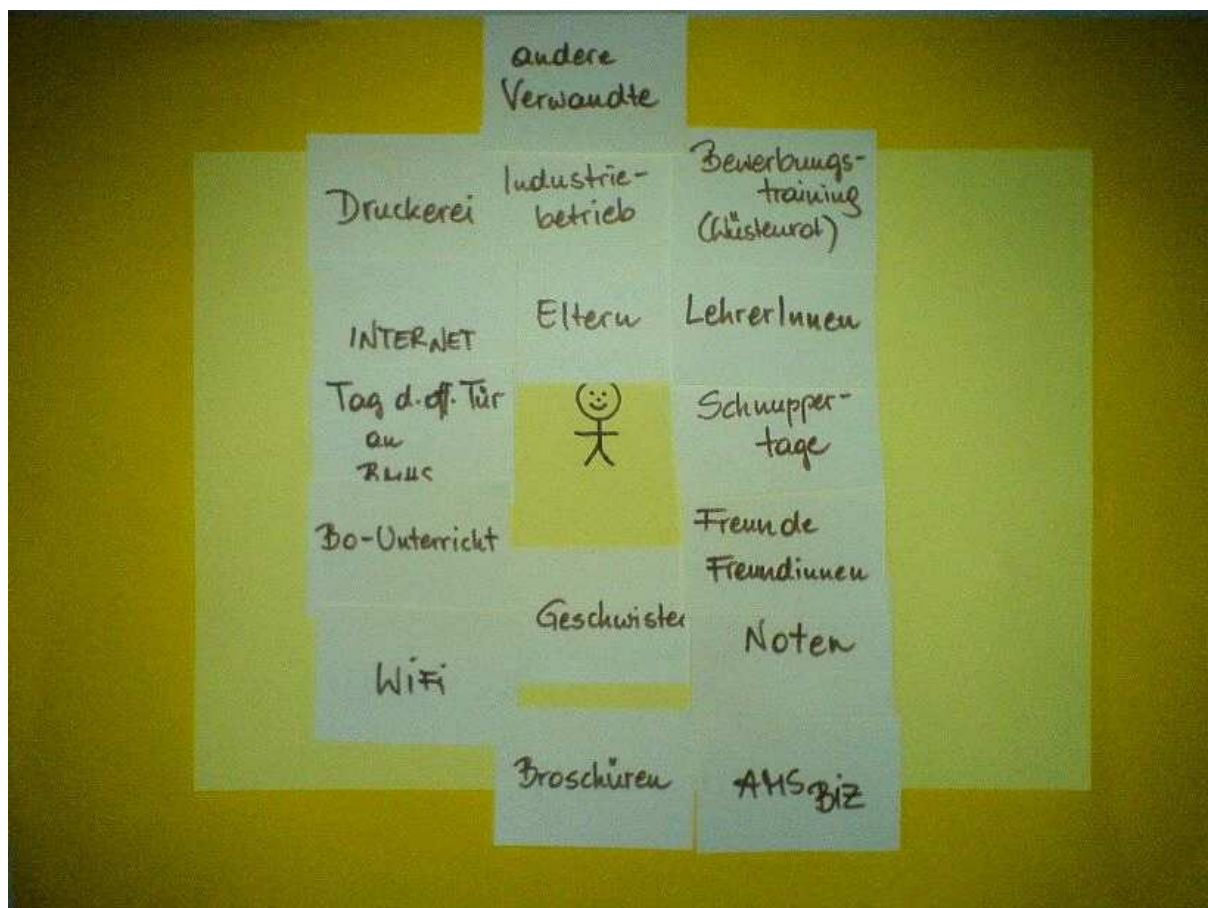 andere
Verwandte
Druckerei
Industrie-
betrieb
Bewerbungs-
training
(Wüstenrot)
INTERNET
Eltern
LehrerInnen
Tag d. off. Tür
an
BMHS
Schnupper-
tage
Bo-Unterricht
Freunde
Freundinnen
Geschwister
Noten
WiFi
Broschüren
AMS BiZ